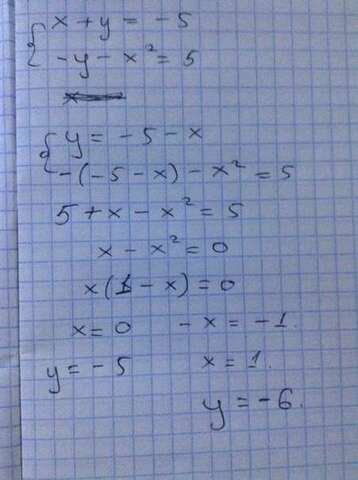 x + y = -5
-y - x² = 5
y = -5 - x
-(-5 - x) - x² = 5
5 + x - x² = 5
x - x² = 0
x(1 - x) = 0
x = 0 - x = -1.
y = -5 x = 1.
y = -6.